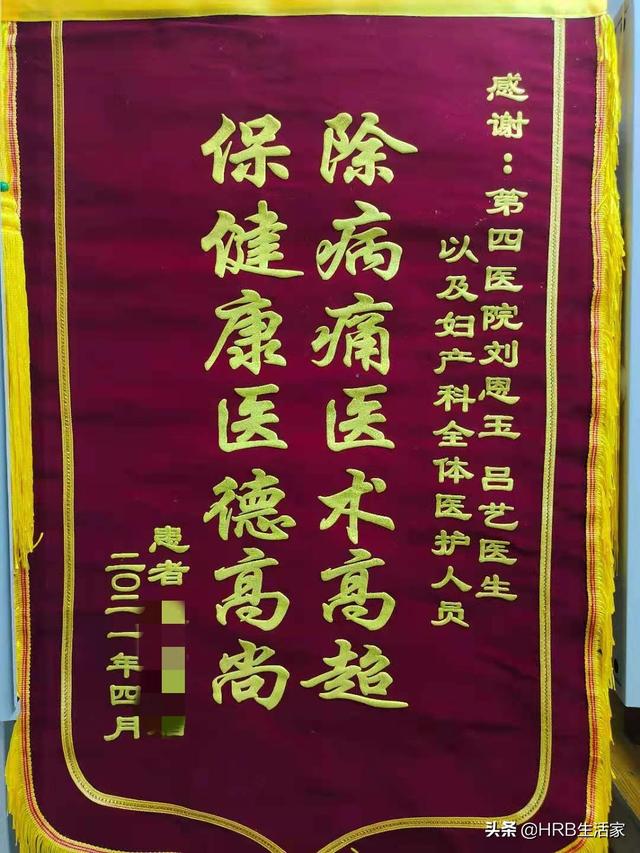 感谢：第四医院刘恩玉 吕艺医生
以及妇产科全体医护人员
除病痛医术高超
保健康医德高尚
患者
二〇二一年四月
头条 @HRB生活家